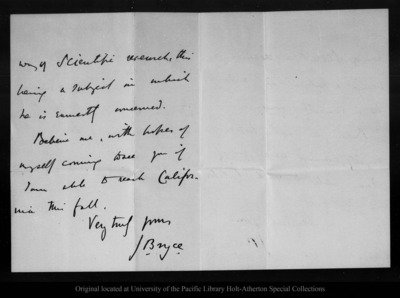 way of Scientific research, this
being a subject in which
he is earnestly concerned.
Believe me, with hopes of
myself coming to see you if
I am able to reach Califor-
nia this fall.
Very truly yours
J Bryce
Original located at University of the Pacific Library Holt-Atherton Special Collections